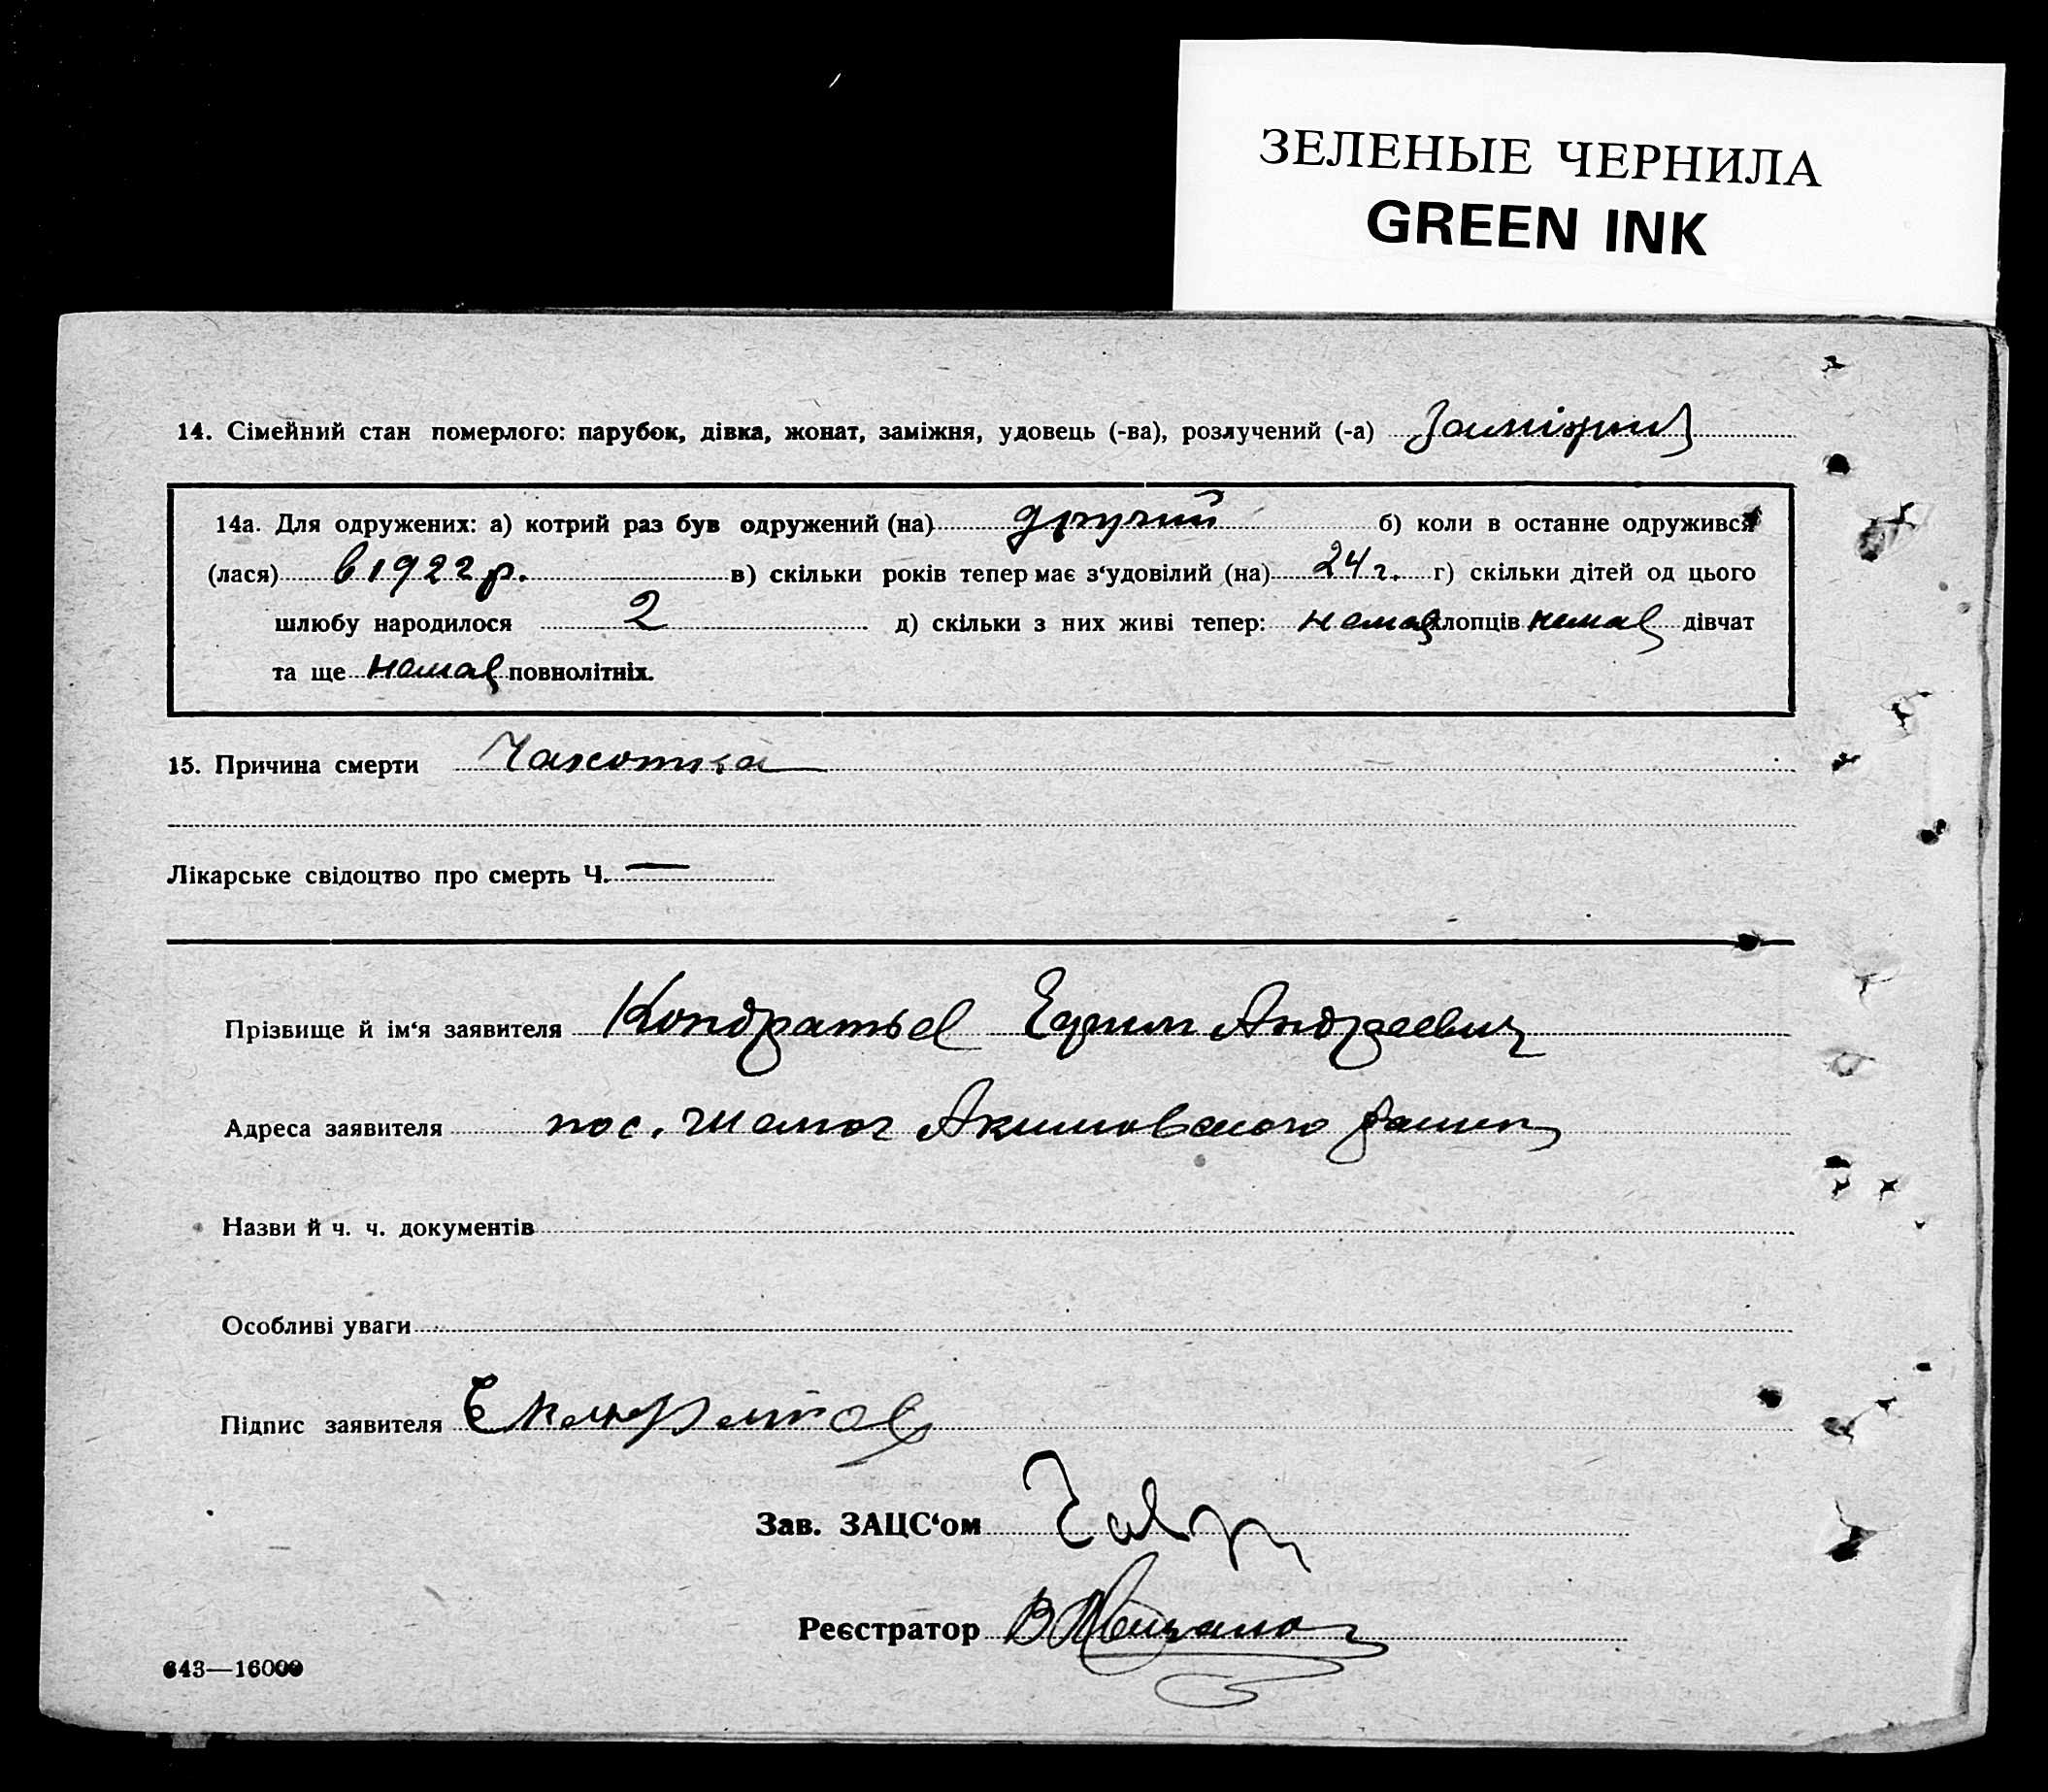 ЗЕЛЕНЫЕ ЧЕРНИЛА
GREEN INK
14. Сімейний стан померлого: парубок, дівка, жонат, заміжня, удовець (-ва), розлучений (-а)
14а. Для одружених: а) котрий раз був одружений (на) другий б) коли в останне одружився
(лася) в 1922 р. в) скільки років тепер має з‘удовілий (на) 24 г. г) скільки дітей од цього
шлюбу народилося 2 д) скільки з них живі тепер: немає хлопців немає дівчат
та ще немає повнолітніх.
15. Причина смерти Чахотка
Лікарське свідоцтво про смерть Ч. —
Прізвище й ім‘я заявителя Кондратьев Ефим Андреевич
Адреса заявителя пос. Акимовского
Назви й ч. ч. документів
Особливі уваги
Підпис заявителя
Зав. ЗАЦС‘ом
Реєстратор
643—16000